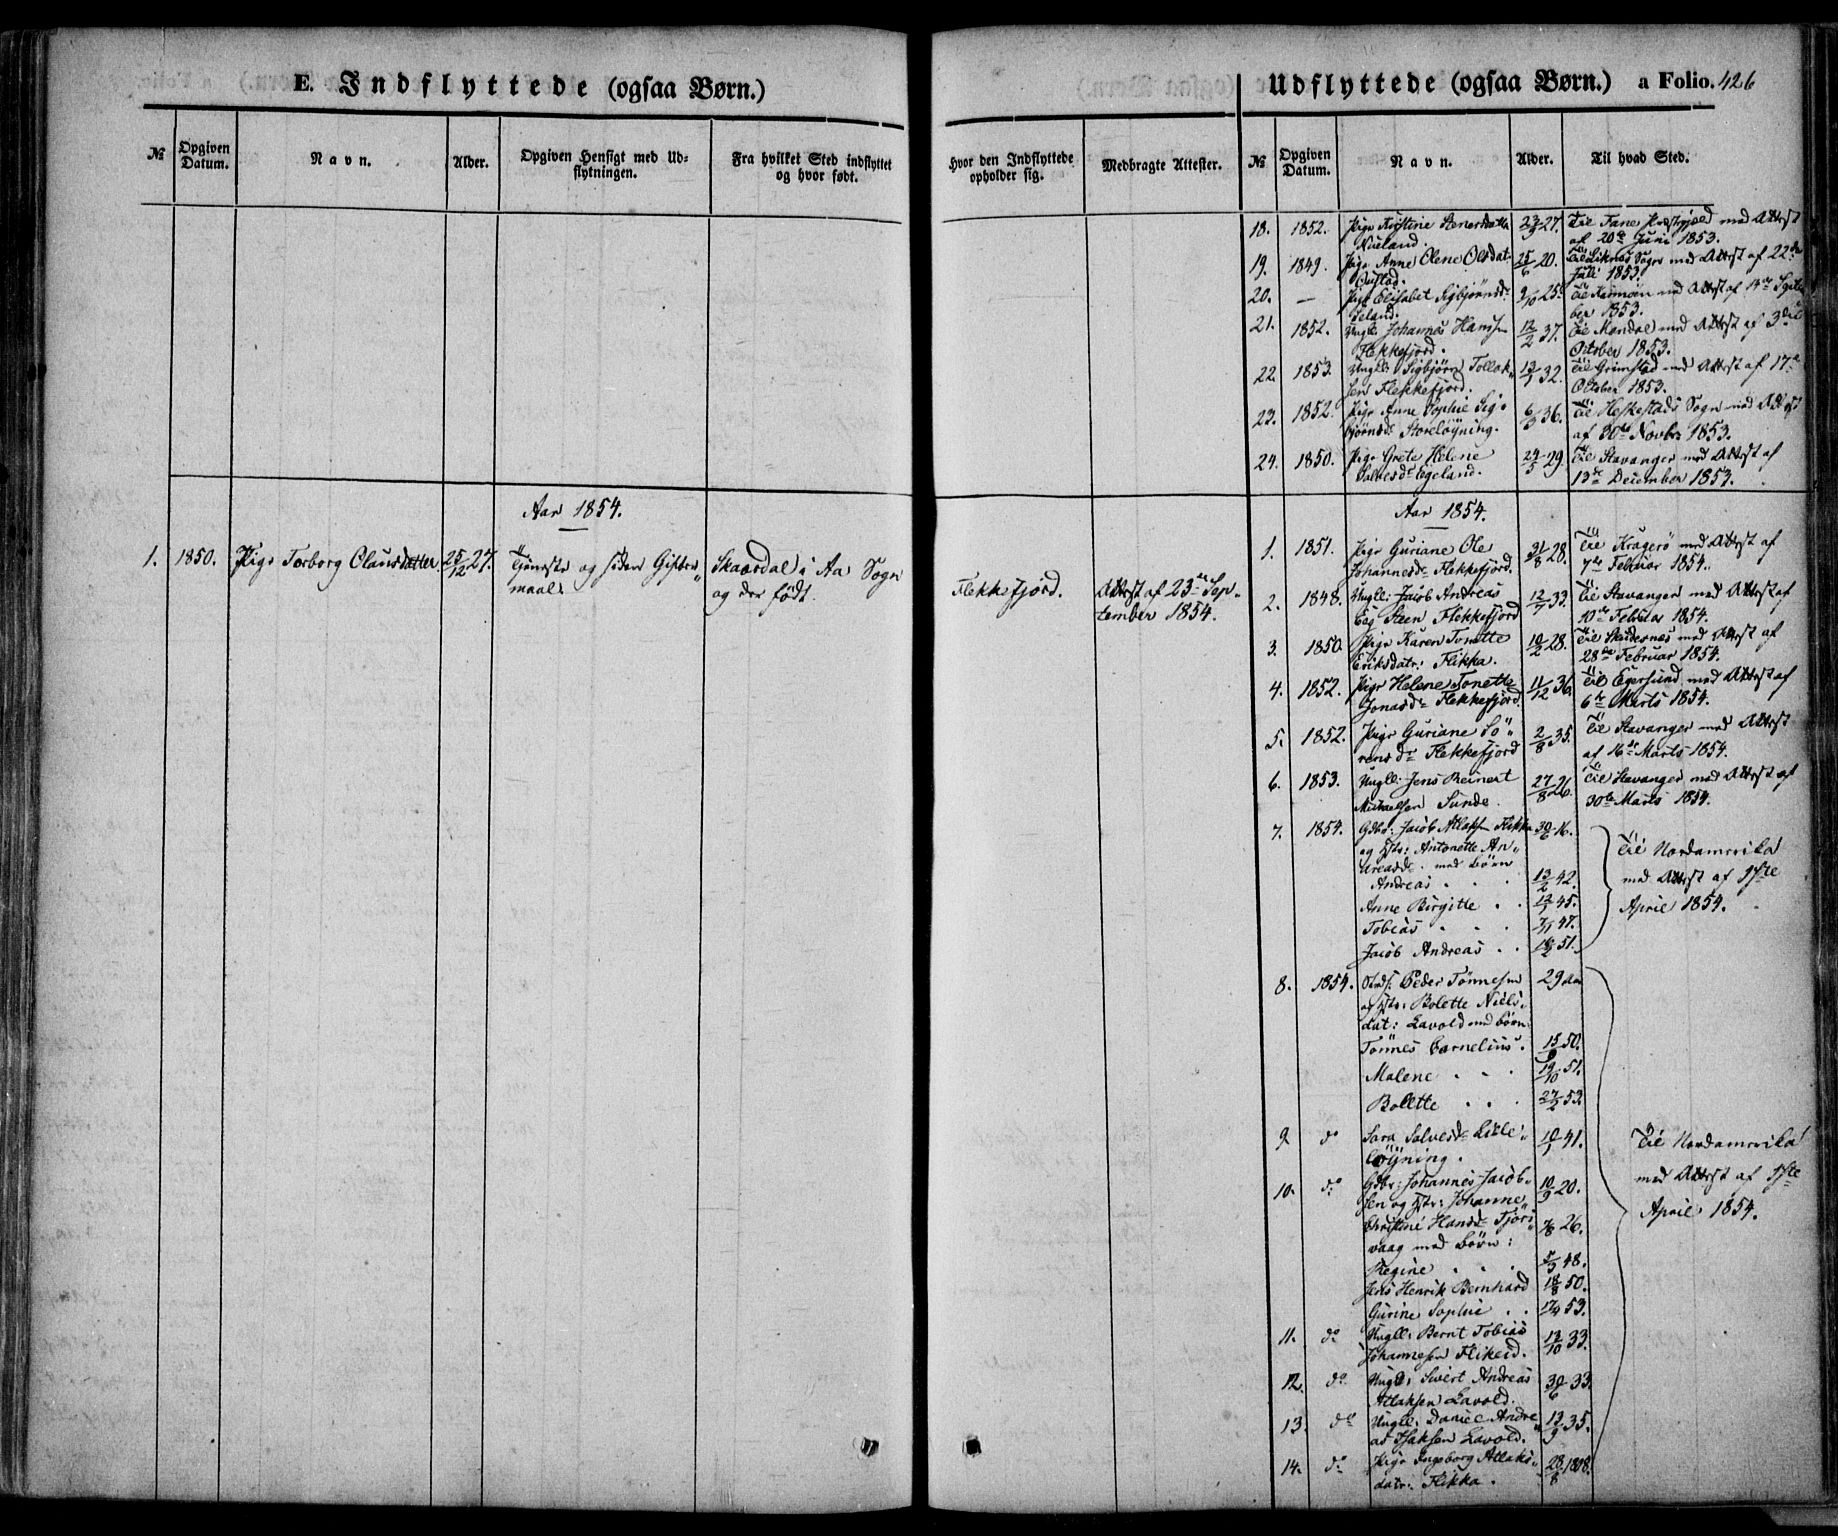 E. Indflyttede (ogsaa Børn.)
№
Opgiven Datum.
Navn.
Alder.
Opgiven Hensigt med Ud=
flytningen.
Fra hvilket Sted indflyttet
og hvor født.
Aar 1854.
1. 1850. Pige Torborg Olausdatter 25/12 27. Tjeneste og siden Gifter
maal. Skaardal i Aa Sogn
og der født.
Udflyttede (ogsaa Børn.) a Folio. 426
Hvor den Indflyttede
opholder sig.
Medbragte Attester.
Flekkefjord.
Attest af 23de Sep=
tember 1854.
№
Opgiven
Datum.
Navn.
Alder.
Til hvad Sted.
18. 1852. Pige Kristine Stenersdatter 23/9 27. Til Fane Præstegjeld med Attest
Nuland. af 20de Juni 1853.
19. 1849. Pige Anne Olene Olsdat. 25/6 20. Til Liknæs Sogn med Attest af 22de
Juli 1853.
20. — Pige Elisabet Sigbjørnsd= 9/10 25. Til Karmøen med Attest af 14de Septem
Seland. ber 1853.
21. 1852. Ungk: Johannes Hansen 12/2 37. Til Mandal med Attest af 3die
Flekkefjord. October 1853.
22. 1853. Ungk: Sigbjørn Tollak= 32. Til Grimstad med Attest af 17de
sen Flekkefjord. October 1853.
23. 1852. Pige Anne Sophie Sig= 6/3 36. Til Heskestads Sogn med Attest
bjørnsd= Storeløyning. af 30te Novbr 1853.
24. 1850. Pige Grete Helene 24/5 29. Til Stavanger med Attest af
Salvesd= Egeland. 13de December 1853.
Aar 1854.
1. 1851. Pige Guriane Ole 31/8 28. Til Kragerø med Attest af
Johannesd= Flekkefjord. 7de Februar 1854.
2. 1848. Ungk: Jacob Andreas 12/7 33. Til Stavanger med Attest af
Eeg Steen Flekkefjord 10de Februar 1854.
3. 1850. Pige Karen Tonette 10/2 28. Til Skudesnes med Attest af
Eriksdatr: Flikka. 28de Februar 1854.
4. 1852. Pige Helene Tonette 11/12 36. Til Egersund med Attest af
Jonasd= Flekkefjord 6te Marts 1854.
5. 1852. Pige Guriane Sö= 2/8 35. Til Stavanger med Attest
rensd= Flekkefjord af 16de Marts 1854.
6. 1853. Ungk: Jens Reinert 27/8 26. Til Stavanger med Attest af
Michaelsen Sunde. 30te Marts 1854.
7. 1854. Gdbr: Jacob Atlaksen Flikka 30/6 16.
og Hstr: Antonette An=
dreasd= med Børn
Andreas 13/2 42.
Anne Birgitte 45.
Tobias 7/11 47.
Jacob Andreas 51.
Til Nordamerika
med Attest af 1ste
April 1854.
8. 1854. Peder Tönnesen 29 Aar
og Hstr: Bolette Niels=
dat: Lavold med Børn
Tönnes Cornelius. 50.
Malene 19/10 51.
Bolette 27/2 53.
9 do Sara Salvesd= Lille= 41.
löyning.
10. do Gdbr: Johannes Jacob= 10/9 20.
sen og Hstr: Johanne
Christine Hansd= Fjörs= 26.
vaag med Børn:
Regine 48.
Jens Henrik Bernhard 18/8 50.
Gurine Sophie 17/4 53.
Til Nordamerika
med Attest af 1ste
April 1854.
11. do Ungk: Bernt Tobias 13/10 33.
Johannesen Flikeid.
12. do Ungk: Sivert Andreas 30/6 33.
Atlaksen Lavold.
13. do Ungk: Daniel Andre= 13/9 35.
as Isaksen Lavold.
14. do Pige Ingeborg Atlaks= 28/8 1808.
datr: Flikka.